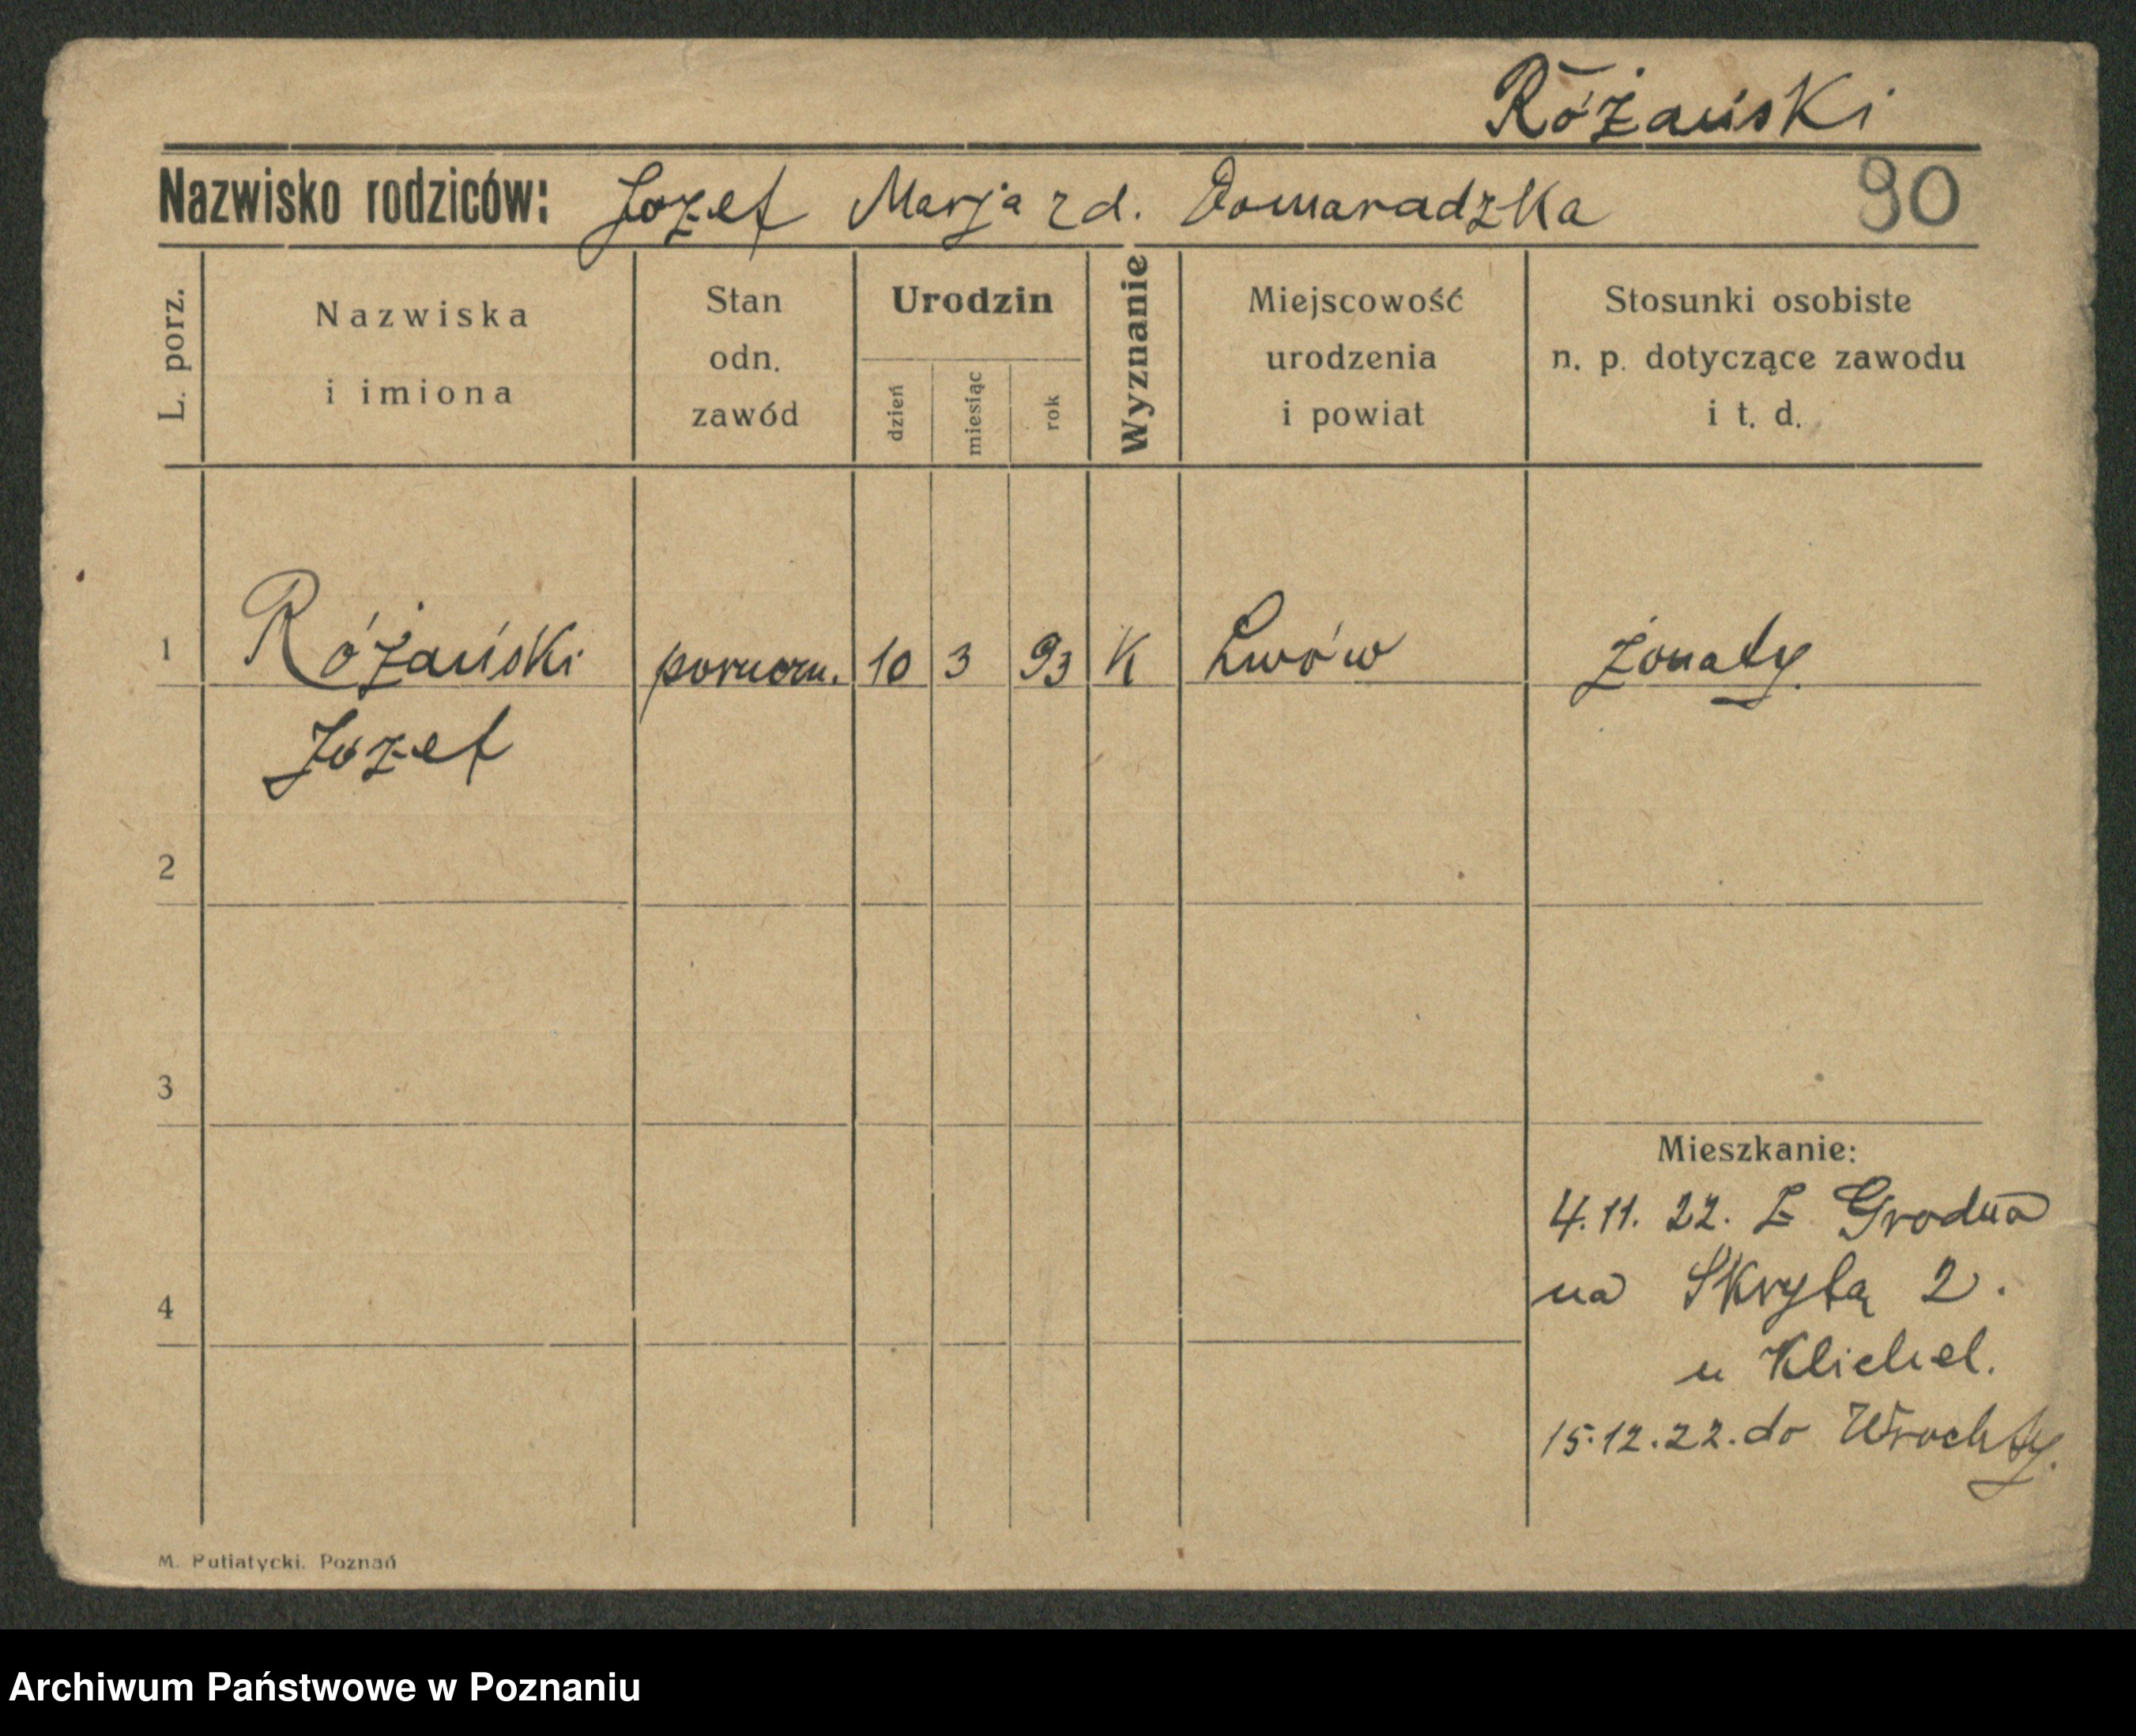 Różański
Nazwisko rodziców: Jozef Marja z d. Domaradzka 90
L. porz.
Nazwiska
i imiona
Stan
odn.
zawód
Urodzin
dzień
miesiąc
rok
Wyznanie
Miejscowość
urodzenia
i powiat
Stosunki osobiste
n. p. dotyczące zawodu
i t. d.
1 Różański poruczn. 10 3 93 K Lwów żonaty.
Jozef
2
3
Mieszkanie:
4.11.22. Z Grodna
4
na Skrytą 2.
u Klichel.
15.12.22. do Wrochty.
M. Putiatycki. Poznań
Archiwum Państwowe w Poznaniu